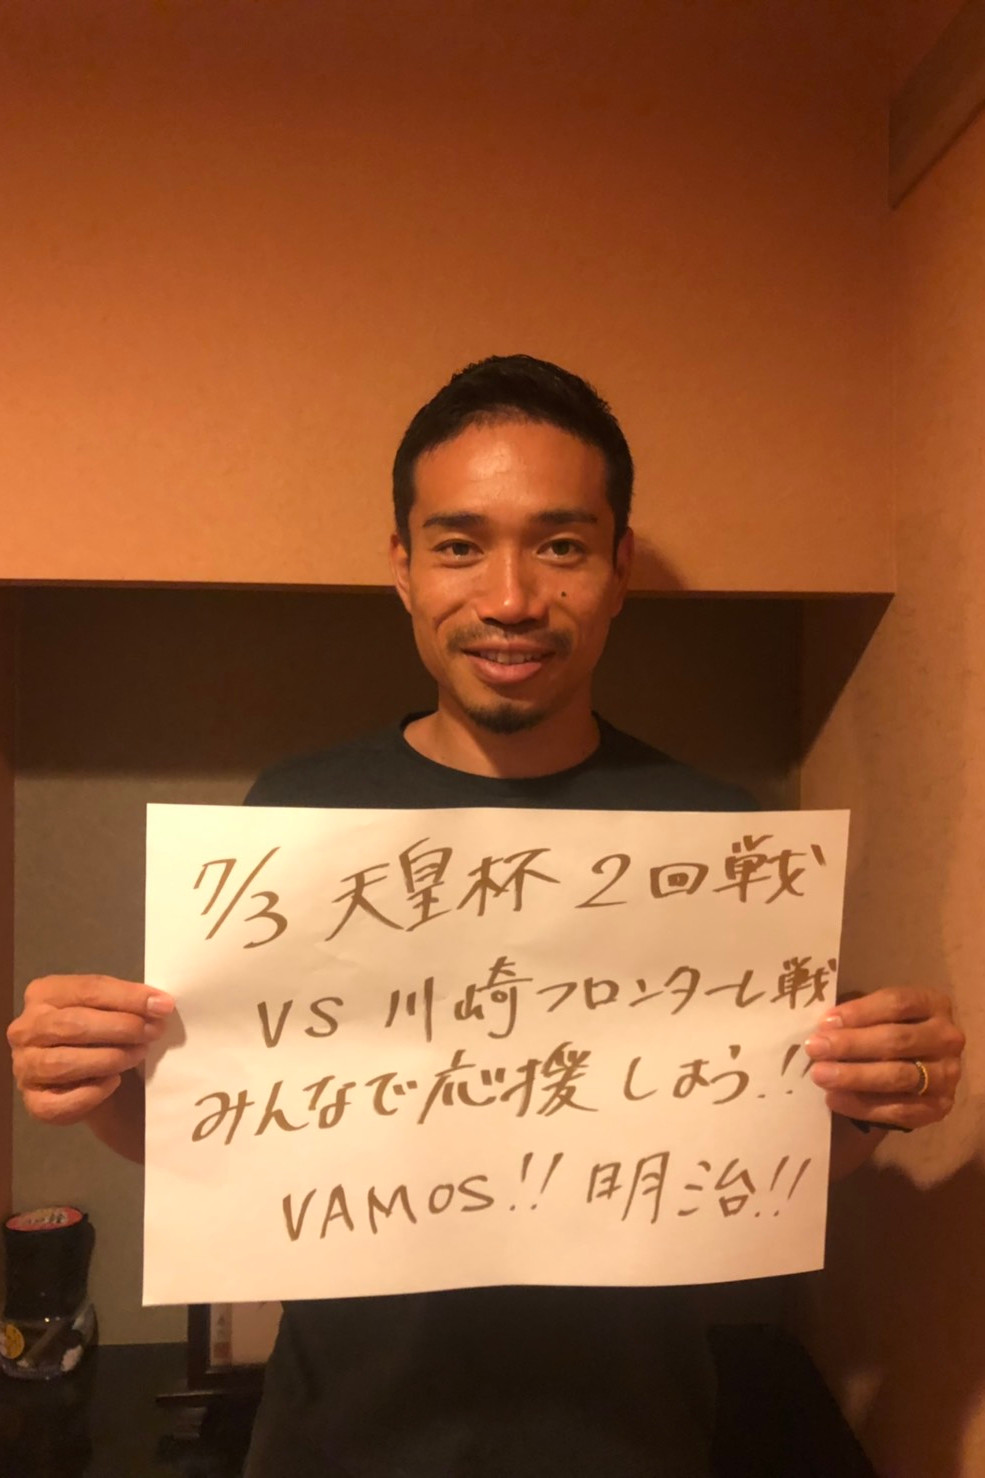 7/3 天皇杯 2回戦
VS 川崎フロンターレ戦
みんなで応援しよう!!
VAMOS!! 明治!!